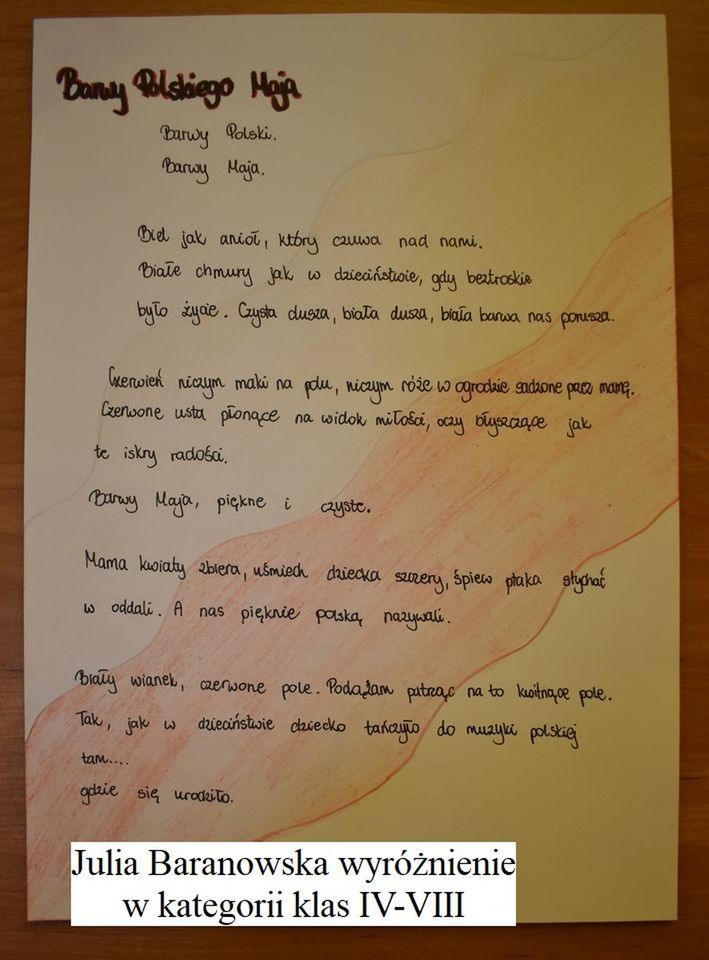 Barwy Polskiego Maja
Barwy Polski.
Barwy Maja.
Biel jak anioł, który czuwa nad nami.
Białe chmury jak w dzieciństwie, gdy beztroskie
było życie. Czysta dusza, biała dusza, biała barwa nas porusza.
Czerwień niczym maki na polu, niczym róże w ogrodzie sadzone przez mamę.
Czerwone usta płonące na widok miłości, oczy błyszczące jak
te iskry radości.
Barwy Maja, piękne i czyste.
Mama kwiaty zbiera, uśmiech dziecka szczery, śpiew ptaka słychać
w oddali. A nas pięknie polską nazywali.
Biały wianek, czerwone pole. Podążam patrząc na to kwitnące pole.
Tak, jak w dzieciństwie dziecko tańczyło do muzyki polskiej
tam....
gdzie się urodziło.
Julia Baranowska wyróżnienie
w kategorii klas IV-VIII